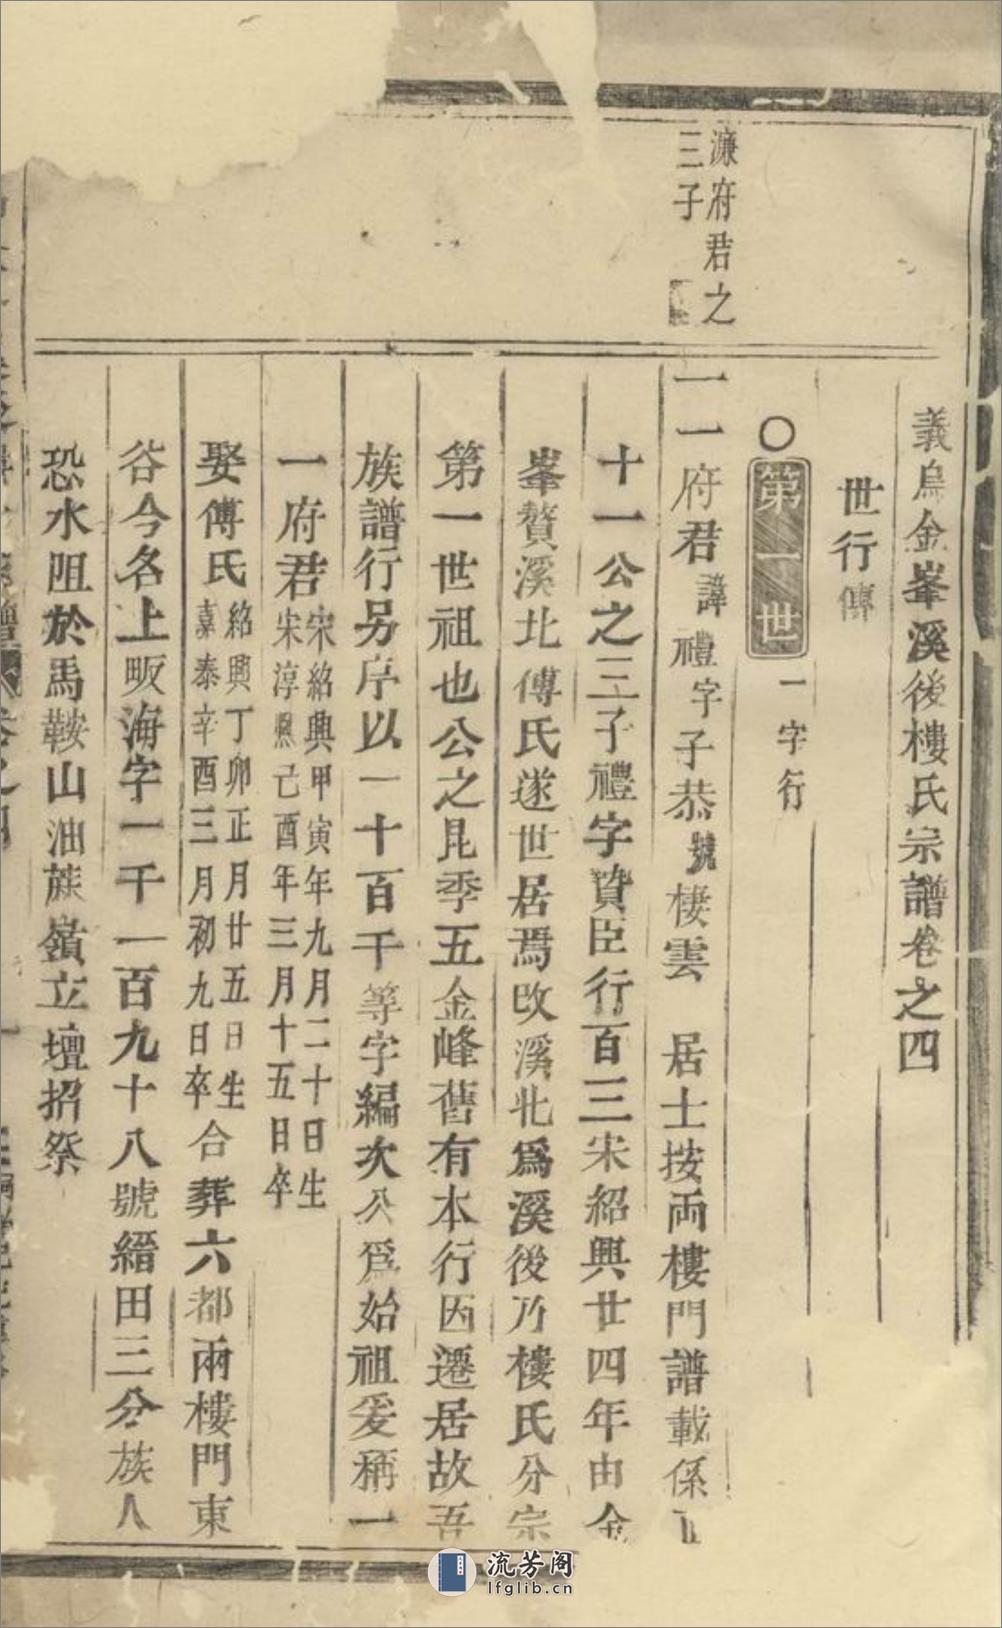 義烏金峯溪後樓氏宗譜卷之四
世行傳
○第一世 一字行
濂府君之
三子
一一府君諱禮字子恭號棲雲 居士按兩樓門譜載係
十一公之三子禮字贊臣行百三宋紹興廿四年由金
峯贅溪北傅氏遂世居焉改溪北爲溪後乃樓氏分宗
第一世祖也公之昆季五金峰舊有本行因遷居故吾
族譜行另序以一十百千等字編次公爲始祖爰稱一
一府君宋紹興甲寅年九月二十日生
宋淳熙己酉年三月十五日卒
娶傅氏紹興丁卯正月廿五日生
嘉泰辛酉三月初九日卒合葬六都兩樓門東
谷今名上畈海字一千一百九十八號縉田三分族人
恐水阻於馬鞍山油蔴嶺立壇招祭
流芳阁
lfglib.cn